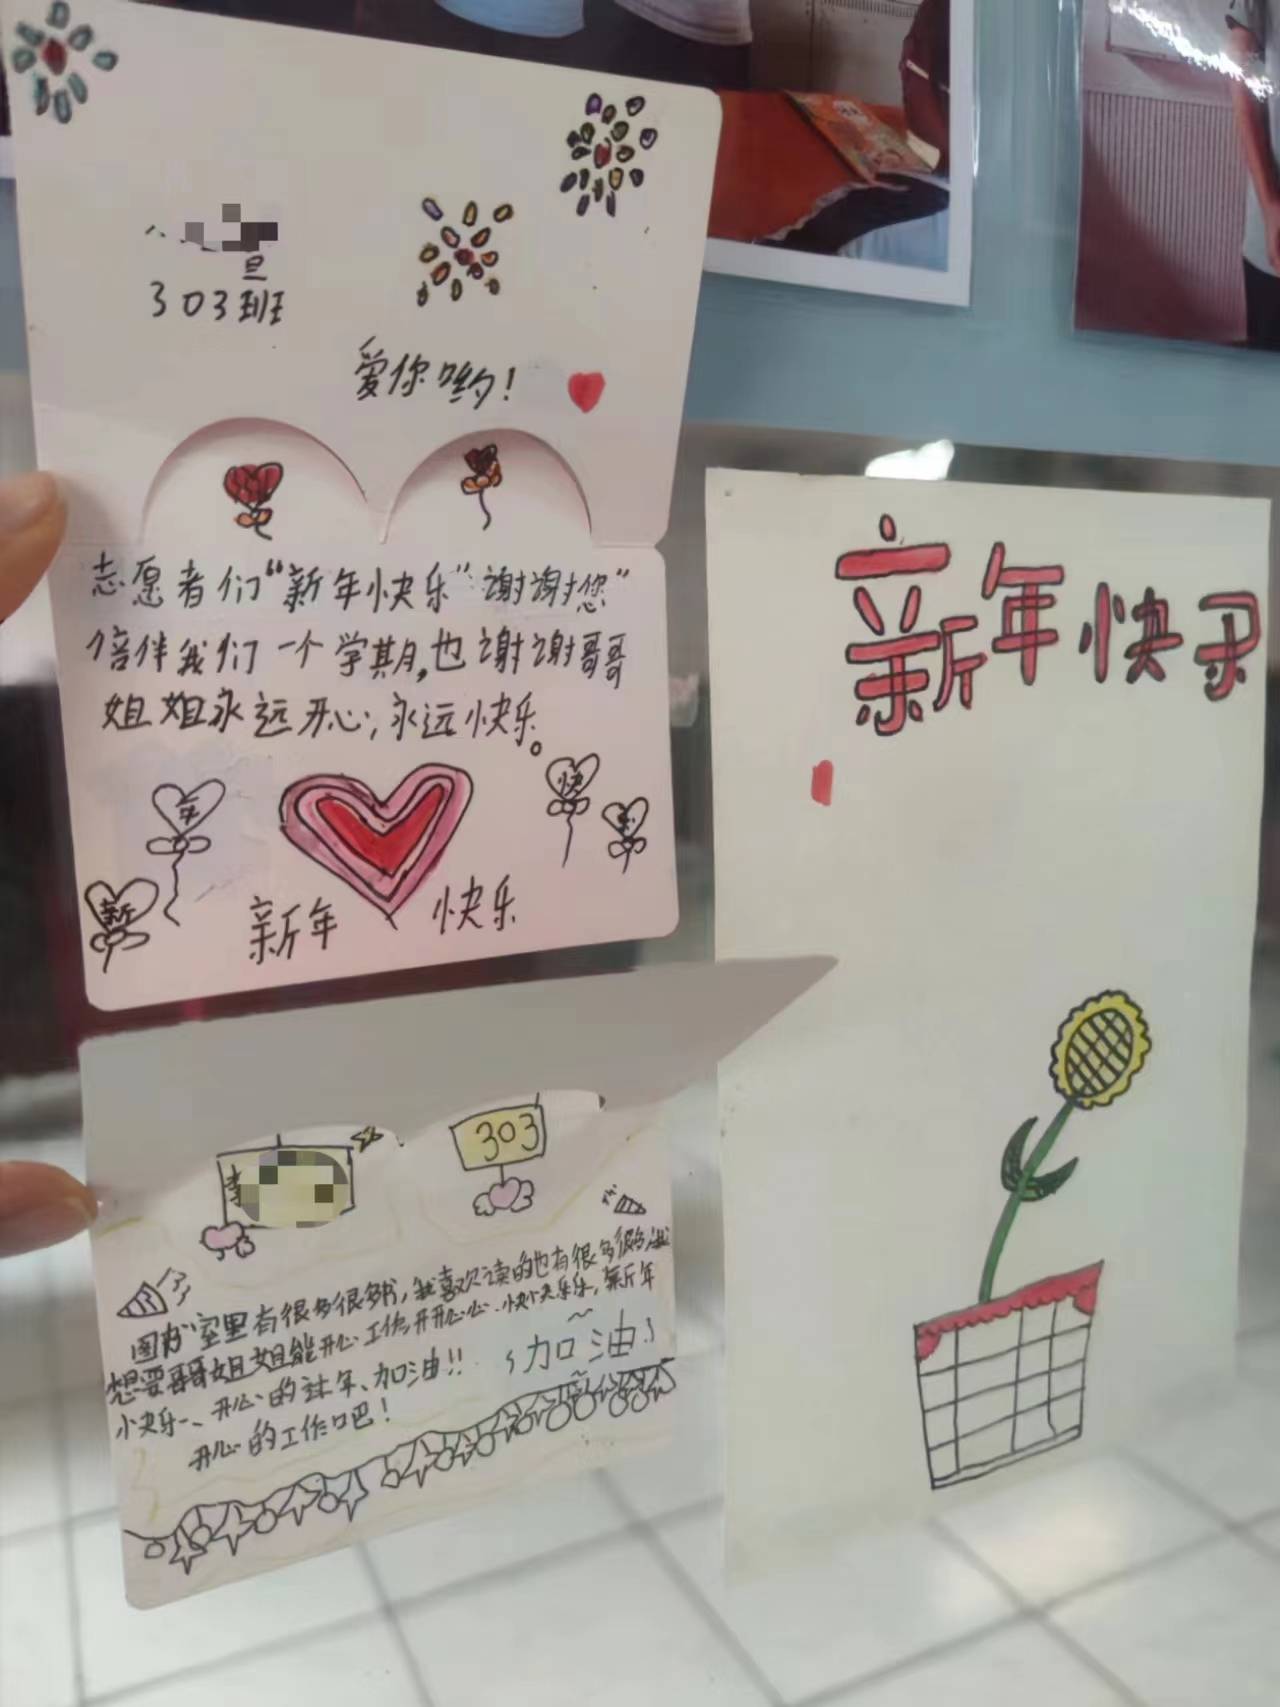 旦
303班
爱你哟!
志愿者们“新年快乐”谢谢您”
倍伴我们一个学期,也谢谢哥哥
姐姐永远开心,永远快乐。
年
快
乐
新
新年 快乐
新年快乐
李
303
图书室里有很多很多书,我喜欢读的也有很多很多,我
想要哥哥姐姐能开心工作,开开心心、快快乐乐,新年
小快乐、开心的过年、加油!!
加油
开心的工作吧!